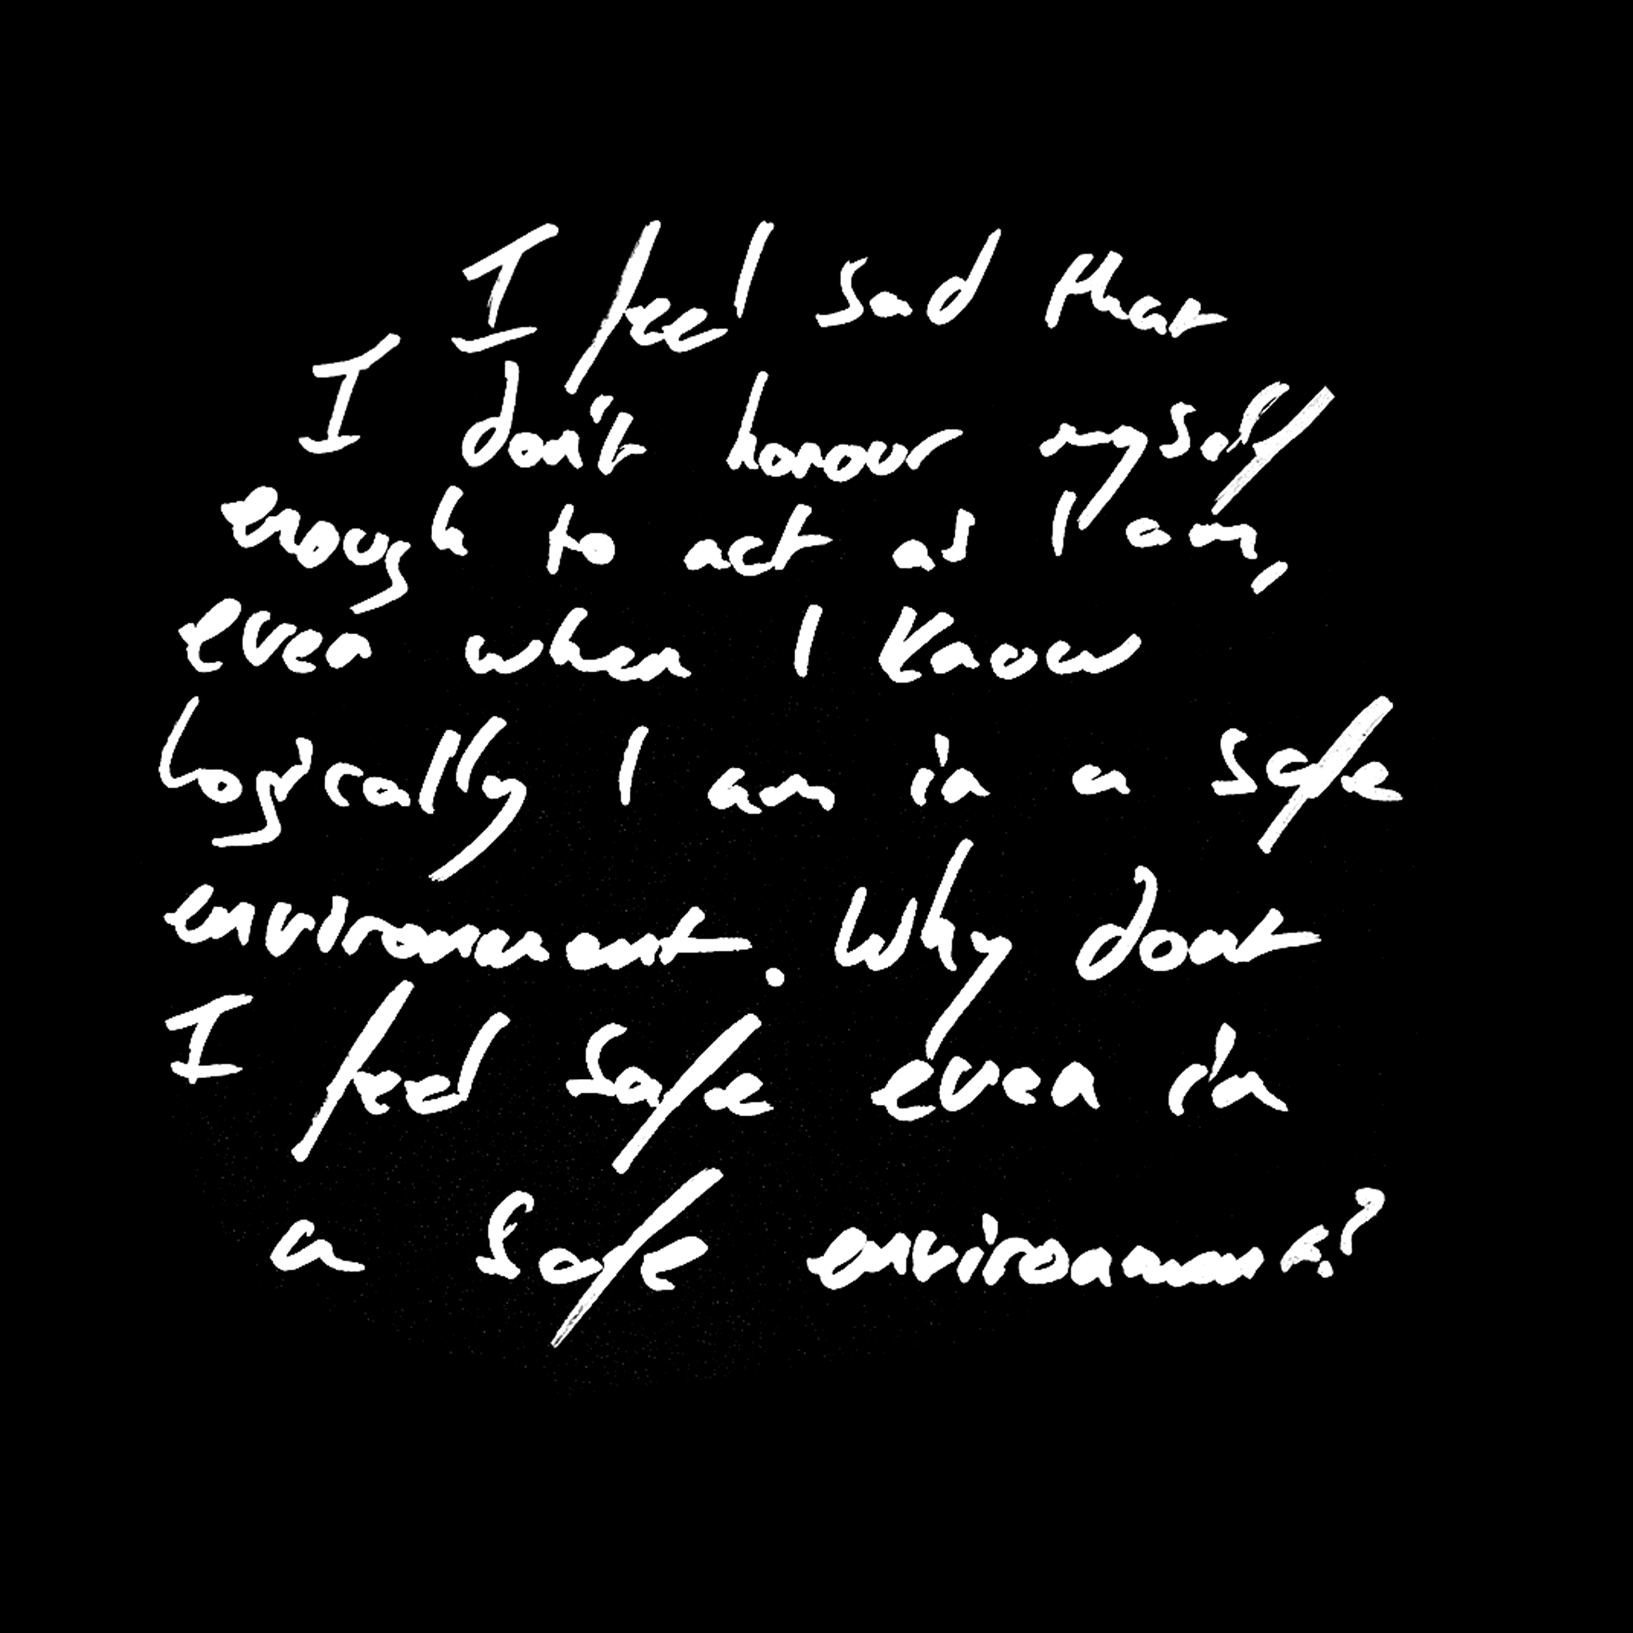 I feel sad that
I don't honour myself
enough to act as I am,
even when I know
logically I am in a safe
environment. Why dont
I feel safe even in
a safe environment?